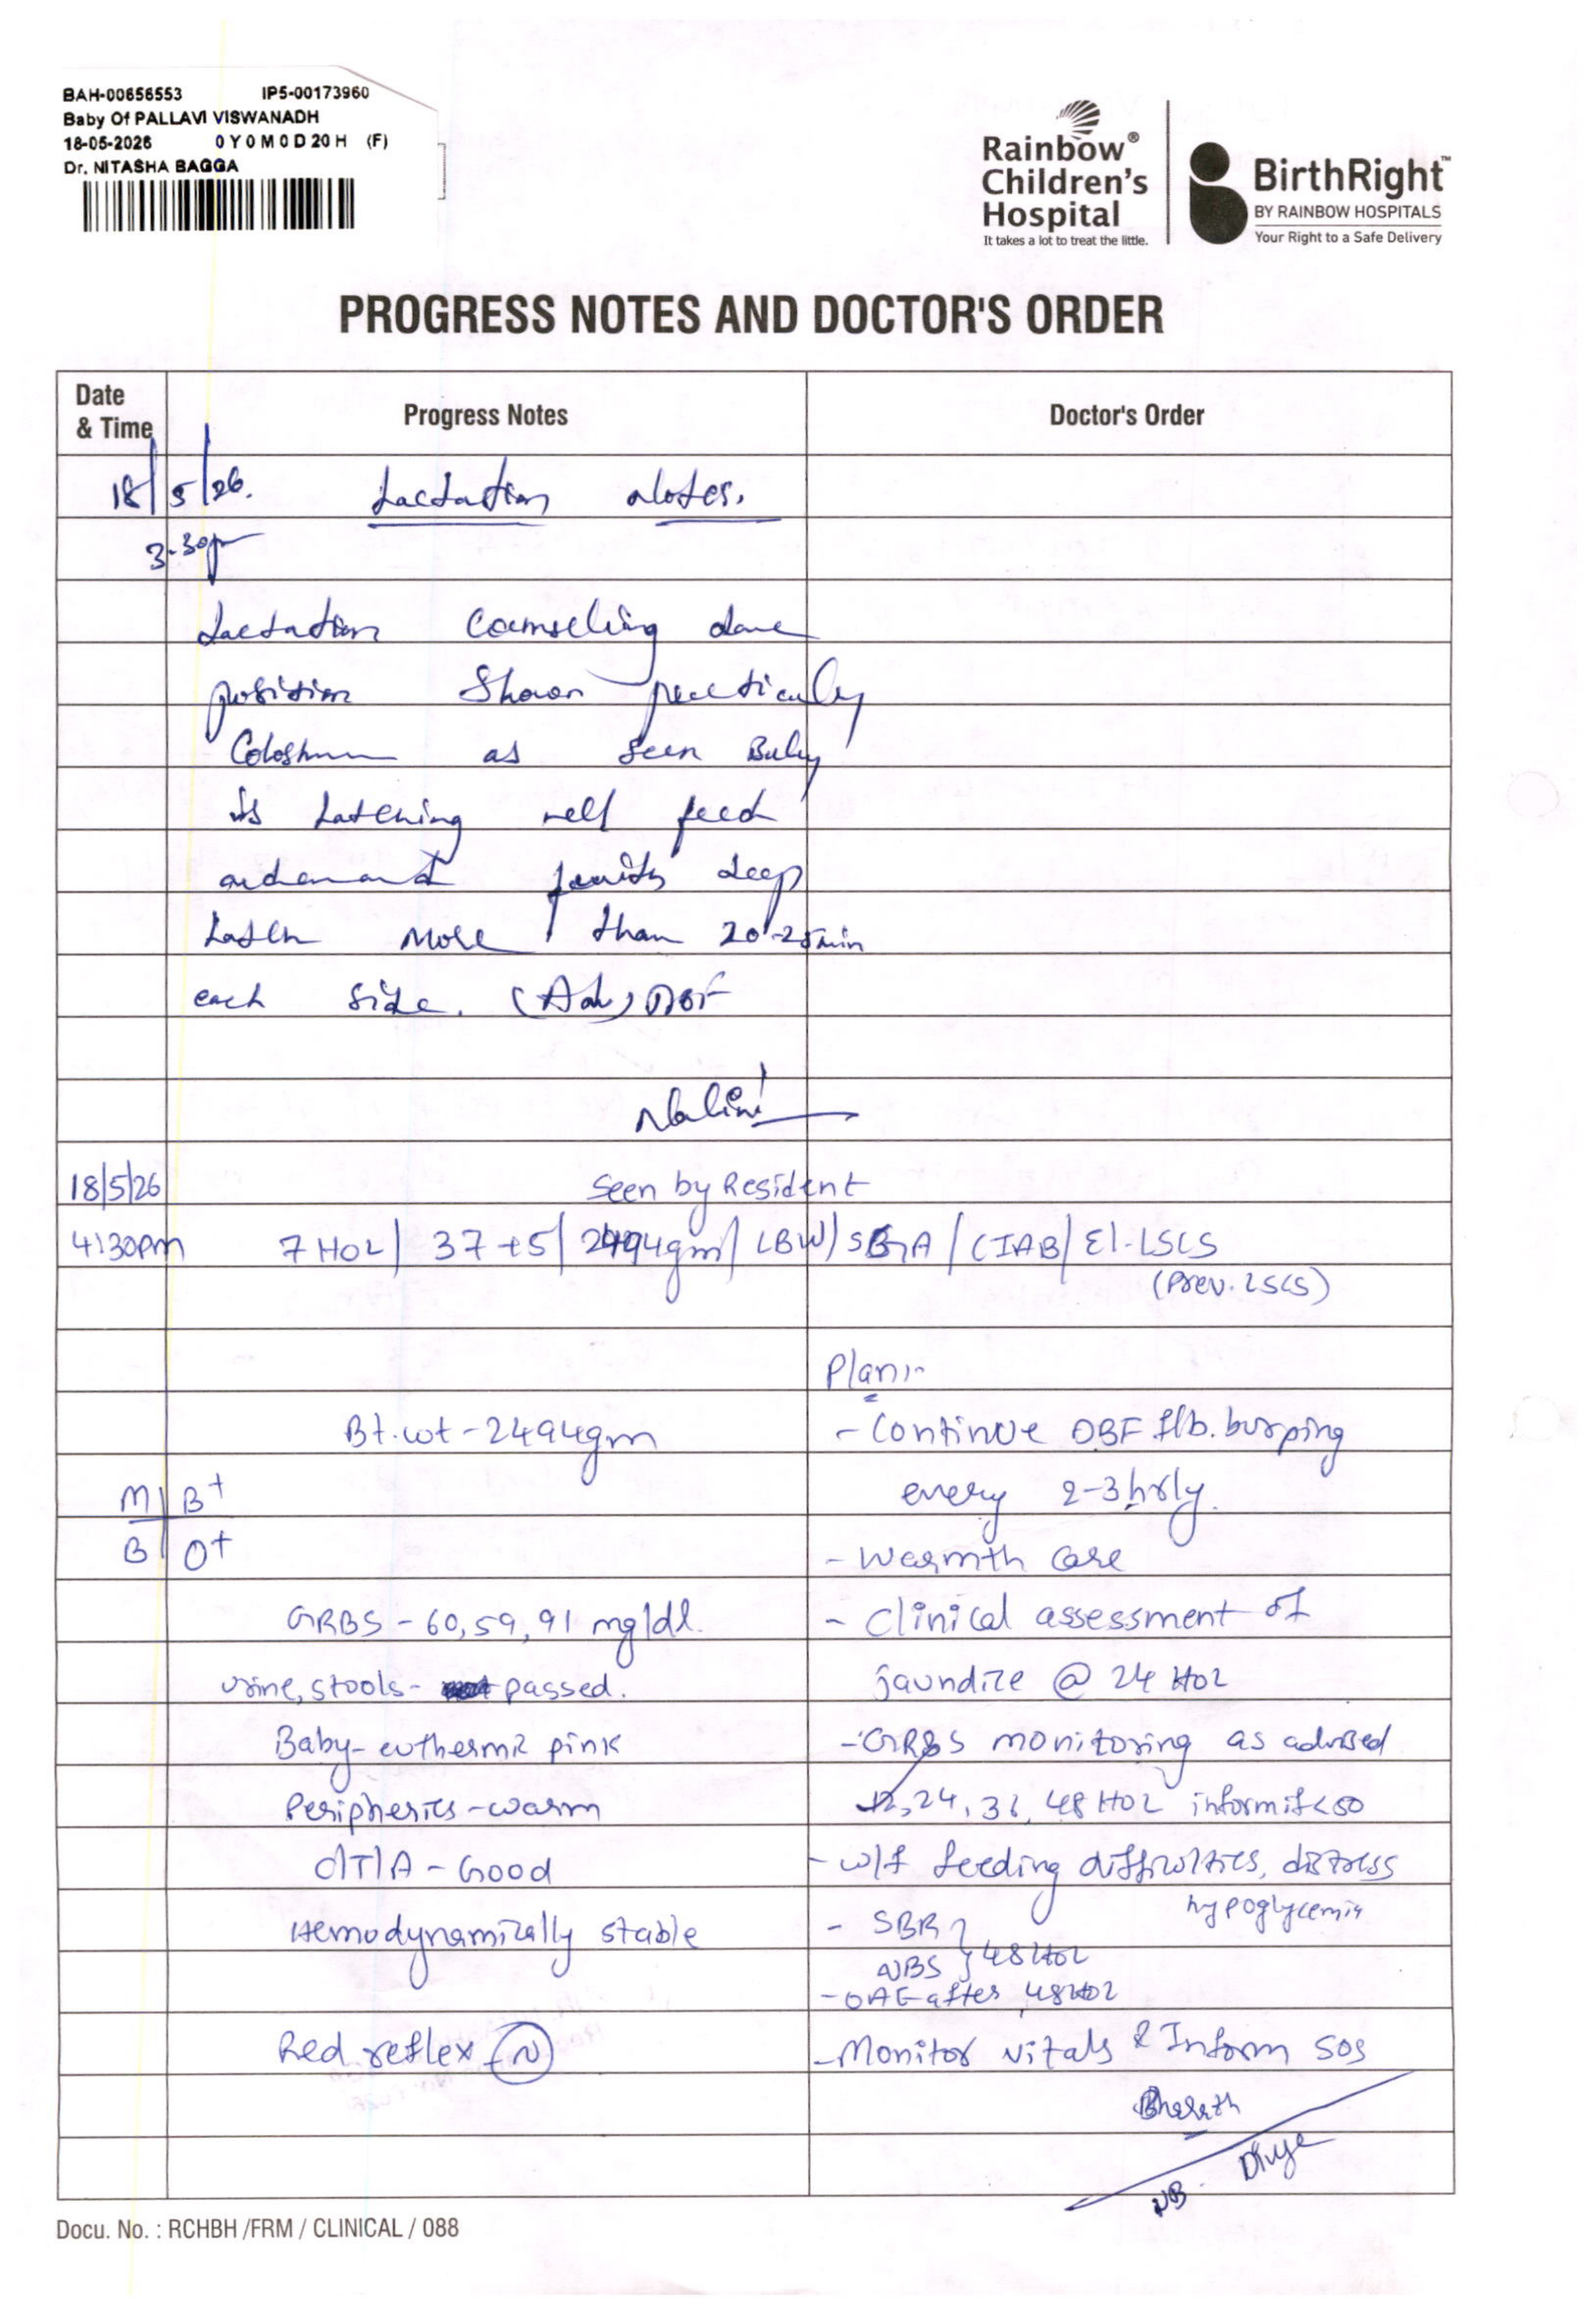 BAH-00656553 IP5-00173960
Baby Of PALLAVI VISWANADH
18-05-2026 0 Y 0 M 0 D 20 H (F)
Dr. NITASHA BAGGA
Rainbow®
Children's
Hospital
It takes a lot to treat the little.
BirthRight™
BY RAINBOW HOSPITALS
Your Right to a Safe Delivery
PROGRESS NOTES AND DOCTOR'S ORDER
Date
& Time
Progress Notes
Doctor's Order
18/5/26. Lactation Notes.
3.30p
Lactation Counseling done
position Shown practically
as Seen Baby
is Latching well feed
deep
Latch More than 20-25min
each side. (Adv) DBF
Nalini
18/5/26 Seen by Resident
4:30pm 7 HOL / 37+5 / 2494gm / LBW / SGA / CIAB / El-LSCS
(Prev. LSCS)
Plan:-
Bt.wt - 2494gm
- Continue DBF f/b. burping
every 2-3 hrly.
M B+
B O+
- Warmth care
GRBS - 60, 59, 91 mg/dl.
- Clinical assessment of
jaundice @ 24 HOL
urine, stools - passed.
Baby - euthermic pink
- GRBS monitoring as advised
Peripheries - warm
12, 24, 36, 48 HOL inform if <50
C/T/A - Good
- w/f feeding difficulties, distress
hypoglycemia
Hemodynamically stable
- SBR
NBS } 48 HOL
- OAE after 48 HOL
Red reflex - (N)
- Monitor vitals & Inform SOS
Bharath
NB - Divya
Docu. No. : RCHBH /FRM / CLINICAL / 088